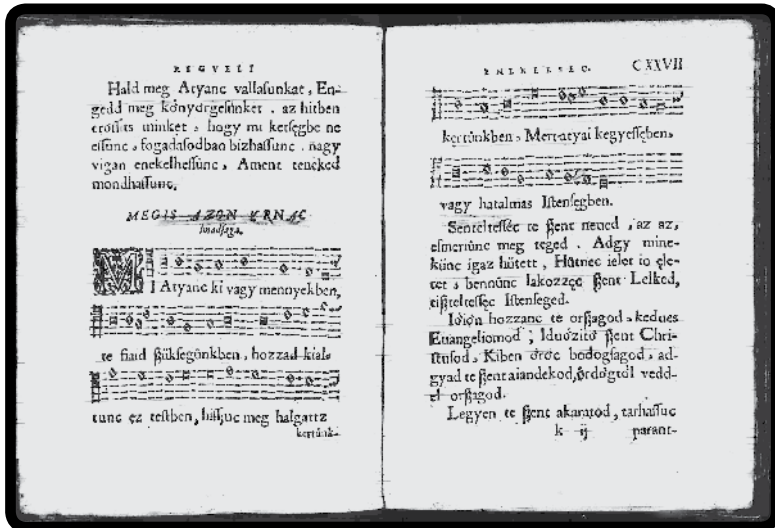 REGVELI
Hald meg Atyanc vallaſunkat, En-
gedd meg kőnyőrgeſünket, az hitben
erőſſits minket, hogy mi ketſęgbe ne
eſſünc, fogadaſodban bizhaſſunc, nagy
vigan enekelheſſünc, Ament teneked
mondhaſſunc.
MEGIS AZON VRNAC
imadſaga.
MI Atyanc ki vagy mennyekben,
te fiaid ſzükſegünkben, hozzad kial-
tunc ęz teſtben, hiſſzuc meg halgattz
kertünk-
ENEKESEC. CXXVII
kertünkben, Mert atyai kegyeſſęben,
vagy hatalmas Iſtenſegben.
Senteltęſſéc te ſzent neued, az az,
eſmeriünc meg teged. Adgy mine-
künc igaz hütett, Hütnec ielet io ęle-
tet, bennünc lakozzęc ſzent Lelked,
tiſzteltęſſęc Iſtenſeged.
Iőiőn hozzanc te orſzagod, kedues
Euangeliomod, Iduőzitő ſzent Chri-
ſtuſod, Kiben őrőc bodogſagod, ad-
gyad te ſzent aiandekod, őrdőgtől vedd-
el orſzagod.
Legyen te ſzent akaratod, tarhaſſuc
k ij parant-